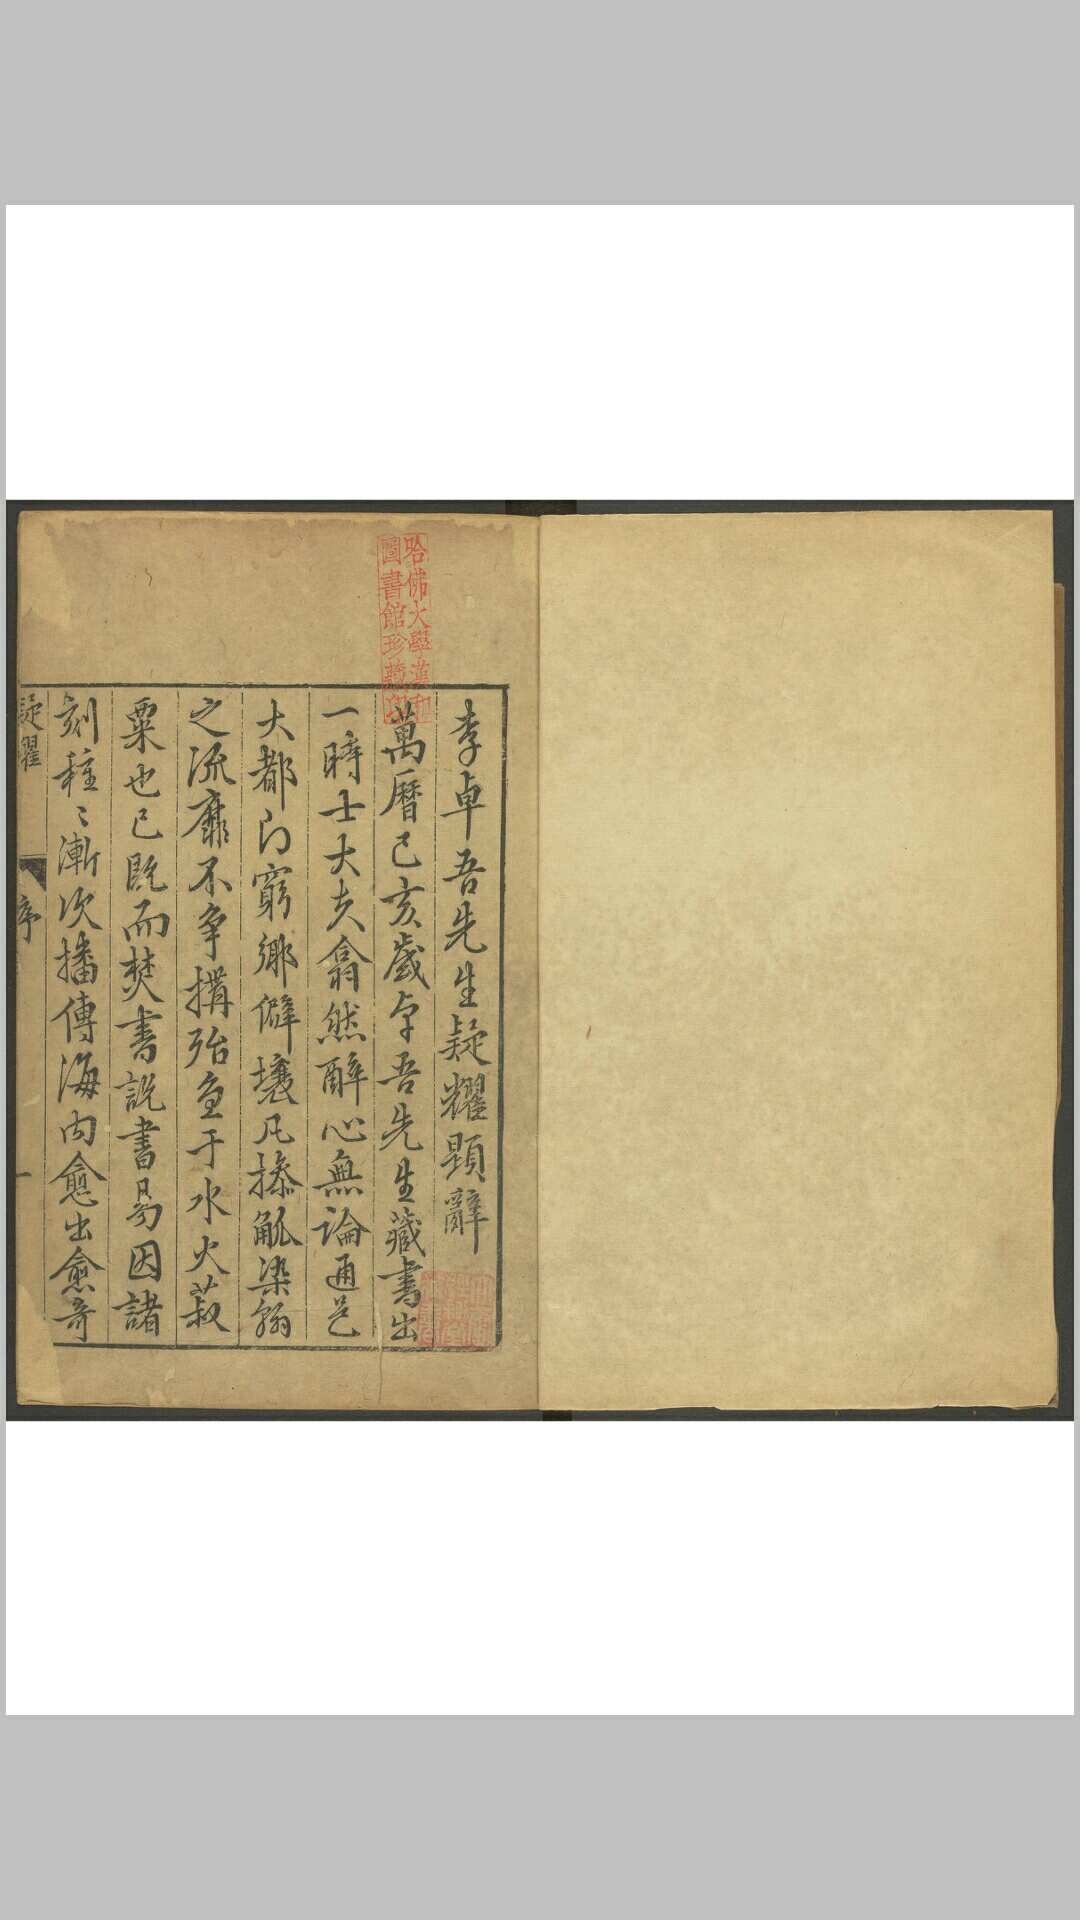 李卓吾先生疑耀題辭
萬曆己亥歲卓吾先生藏書出
一時士大夫翕然醉心無論通邑
大都即窮鄉僻壤凡操觚染翰
之流靡不爭搆殆急于水火菽
粟也已既而焚書說書易因諸
刻種〻漸次播傳海內愈出愈奇
疑耀
序
一
哈佛大學漢和
圖書館珍藏印